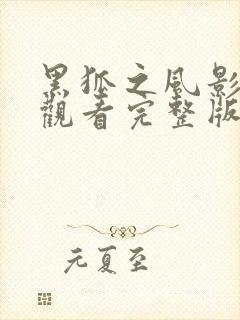 黑狐之風影
觀看完整版
元夏至